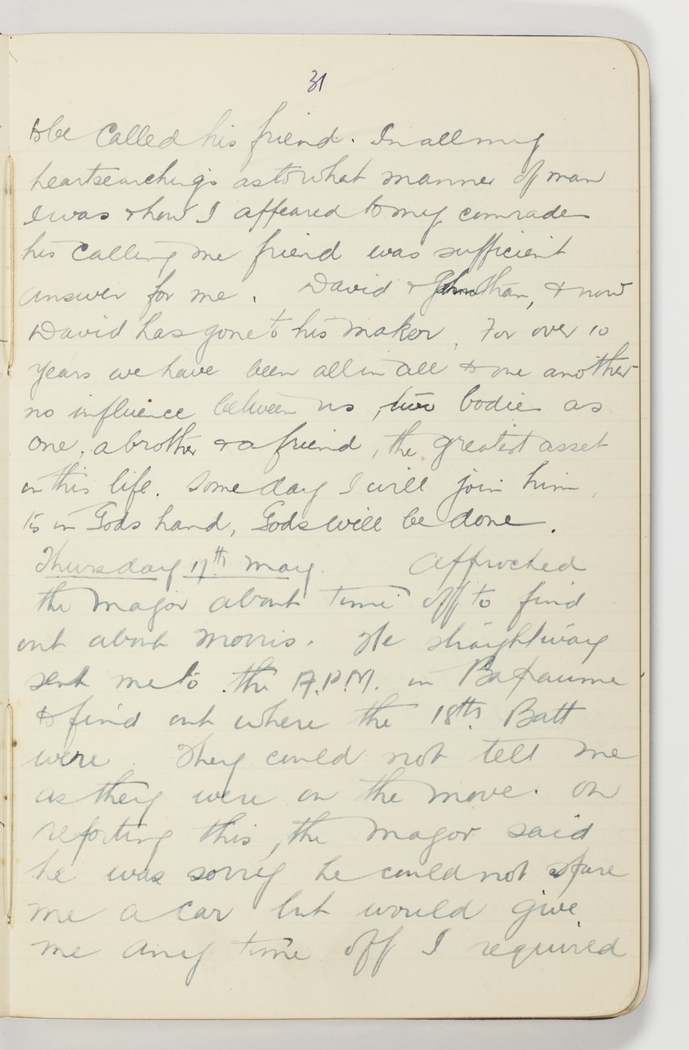 31
to be called his friend. In all my
heartsearchings as to what manner of man
I was & how I appeared to my comrades
his calling me friend was sufficient
answer for me. David & Johnathan, & now
David has gone to his maker. For over 10
years we have been all in all to one another
no influence between us, two bodies as
one, a brother & a friend, the greatest asset
in this life. Some day I will join him,
tis in Gods hand, Gods will be done.
Thursday 17th May. Approched
the Major about time off to find
out about Morris. He straightway
sent me to the A.P.M. in Bapaume
to find out where the 18th Batt
were. They could not tell me
as they were on the move. On
reporting this, the Major said
he was sorry he could not spare
me a car but would give
me any time off I required